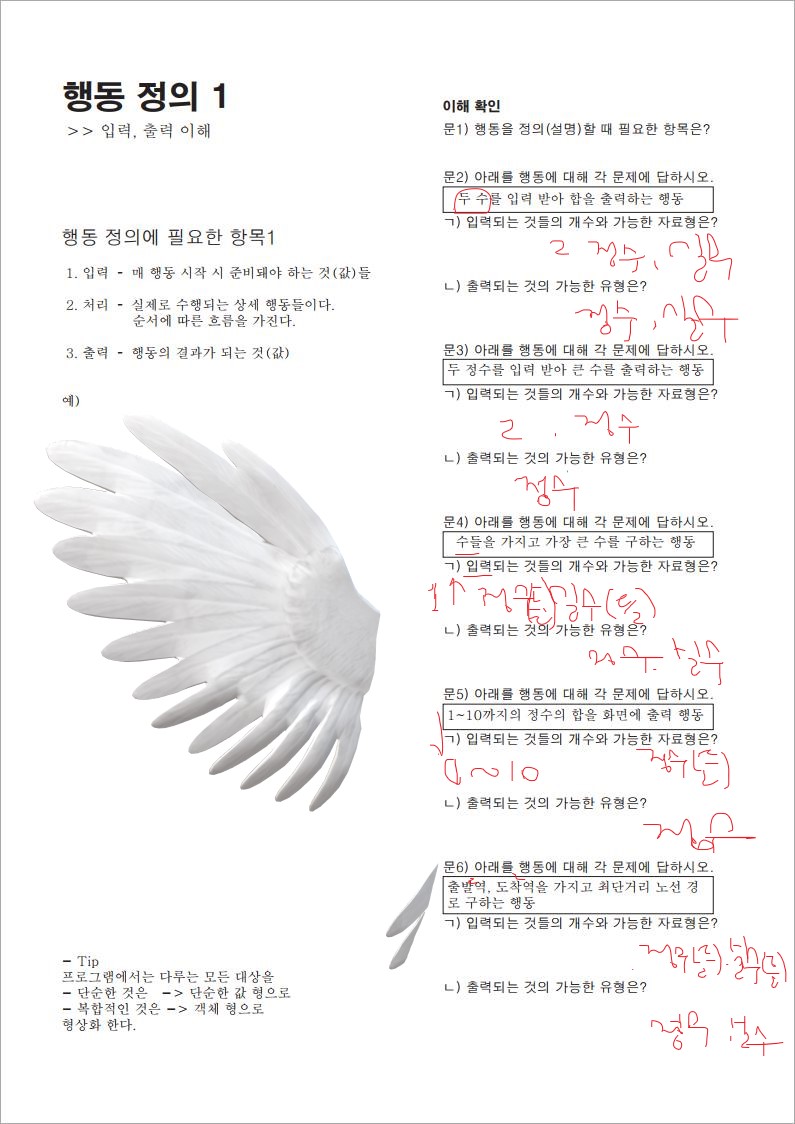 행동 정의 1
>> 입력, 출력 이해
행동 정의에 필요한 항목1
1. 입력 - 매 행동 시작 시 준비돼야 하는 것(값)들
2. 처리 - 실제로 수행되는 상세 행동들이다.
순서에 따른 흐름을 가진다.
3. 출력 - 행동의 결과가 되는 것(값)
예)
- Tip
프로그램에서는 다루는 모든 대상을
- 단순한 것은 -> 단순한 값 형으로
- 복합적인 것은 -> 객체 형으로
형상화 한다.
이해 확인
문1) 행동을 정의(설명)할 때 필요한 항목은?
문2) 아래를 행동에 대해 각 문제에 답하시오.
두 수를 입력 받아 합을 출력하는 행동
ㄱ) 입력되는 것들의 개수와 가능한 자료형은?
2 정수, 실수
ㄴ) 출력되는 것의 가능한 유형은?
정수, 실수
문3) 아래를 행동에 대해 각 문제에 답하시오.
두 정수를 입력 받아 큰 수를 출력하는 행동
ㄱ) 입력되는 것들의 개수와 가능한 자료형은?
2. 정수
ㄴ) 출력되는 것의 가능한 유형은?
정수
문4) 아래를 행동에 대해 각 문제에 답하시오.
수들을 가지고 가장 큰 수를 구하는 행동
ㄱ) 입력되는 것들의 개수와 가능한 자료형은?
정수(들) 실수(들)
ㄴ) 출력되는 것의 가능한 유형은?
정수. 실수
문5) 아래를 행동에 대해 각 문제에 답하시오.
1~10까지의 정수의 합을 화면에 출력 행동
ㄱ) 입력되는 것들의 개수와 가능한 자료형은?
~10 정수(들)
ㄴ) 출력되는 것의 가능한 유형은?
정수
문6) 아래를 행동에 대해 각 문제에 답하시오.
출발역, 도착역을 가지고 최단거리 노선 경
로 구하는 행동
ㄱ) 입력되는 것들의 개수와 가능한 자료형은?
정수(들). 실수(들)
ㄴ) 출력되는 것의 가능한 유형은?
정수 실수